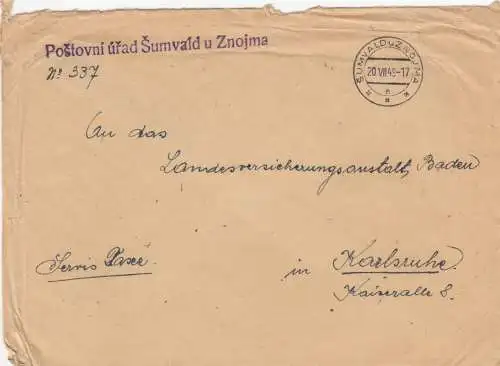 Poštovní úřad Šumvald u Znojma
Nº 337
ŠUMVALD U ZNOJMA
20.VII.48-17
An das
Landesversicherungsanstalt, Baden
Servis Taxee.
in Karlsruhe.
Kaiseralle 8.